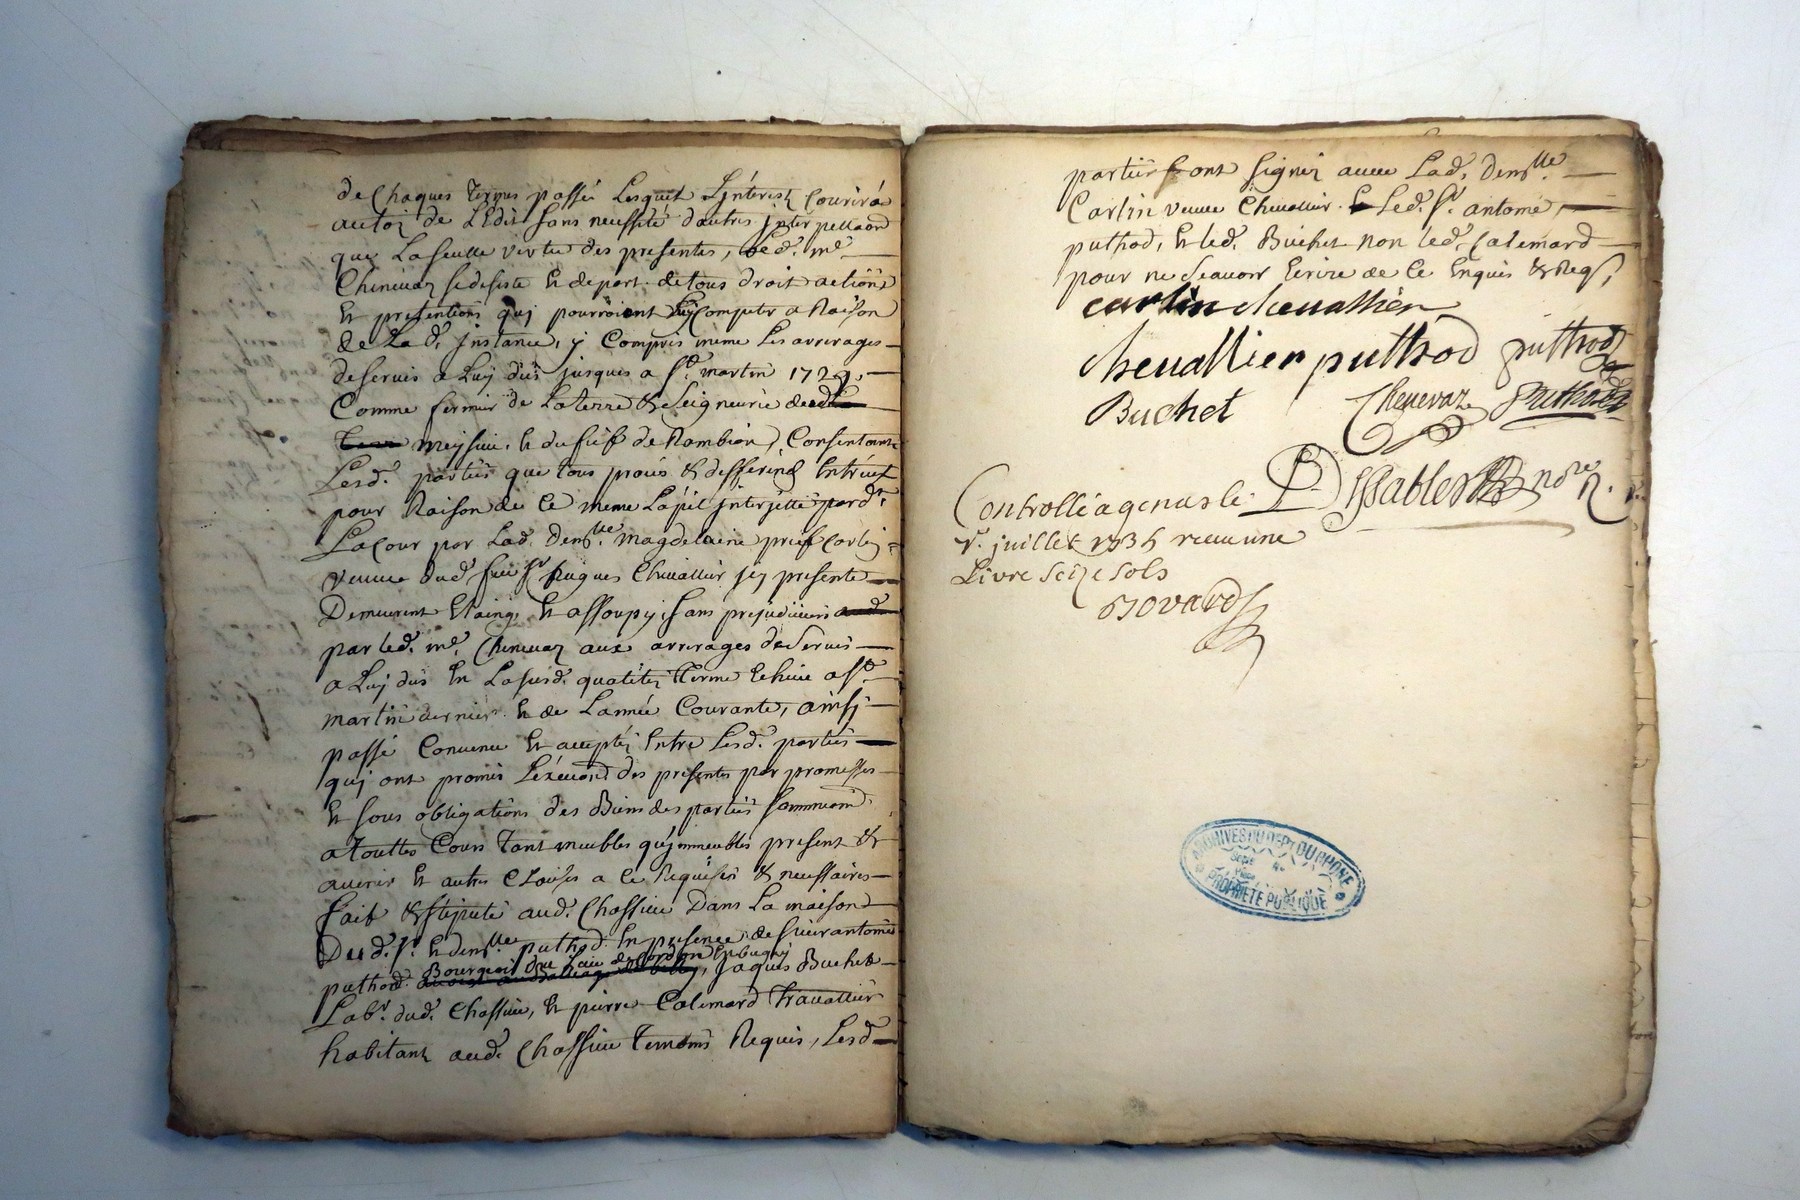 de Chaques termes passé Lesquel Linterest Courira
autoz de LEdit sans neussité dautres jnterpellaõn
que La seulle vertu des presentes, Led. me.
Chenevaz sedesiste et depart de tous droit actions
et pretentions quj pourroient luy Competer a Raison
de La d. jnstance, y Compris meme Les arrerages
deservis a Luy dus jusques a St. martin 1729,
Comme fermier de La terre et seigneurie
meyssiu, et du fief de Rambion, Consentant
Lesd. parties que tous procés et differend Entreux
pour Raison de Ce meme Lapel jnterjetté pard.
La Cour par Lad. demlle. magdelaine Carlin
veuve dud. feu sr hugues Chevallier jcy presente
Demeurent Etaing, et assoupy, sans prejudicier
par led. me. Chenevaz aux arrerages de servis
a Luy dus en La susd. qualité, terme Echeue a St.
martin dernier et de Lannée Courante, ainsj
passé Convenu et accepté Entre Lesd. parties
quj ont promis Lexecuõn des presentes par promesses
et sous obligations des Biens des parties
a touttes Cours tant meubles qujmmeubles present et
avenir et autres Clauses a Ce Requises et neussaires
fait et stipulé aud. Chassieu Dans La maison
Dud. sr. et demlle puthod. En presence de sieur antoine
Bourgeois du Lieu de Cordon En bugey
puthod jaques Buchet
Labr. dud. Chassieu, et pierre Calemard travallieur
habitant aud. Chassieu temoins Requis, Lesd
parties ont signez avec Lad. demlle.
Carlin veuve Chevallier Led. sr. antoine
puthod, et led. Buchet non led. Calemard
pour ne scavoir Ecrire de Ce Enquis et Reqs,
carlin chevallier
chevallier puthod puthod
Buchet Chenevaz Puthod
Desablesz nore R.
Controllé a genas le
1r. juillet 1735 receu une
Livre seize sols
Bovard
ARCHIVES DU DEPT DU RHONE
PROPRIETE PUBLIQUE